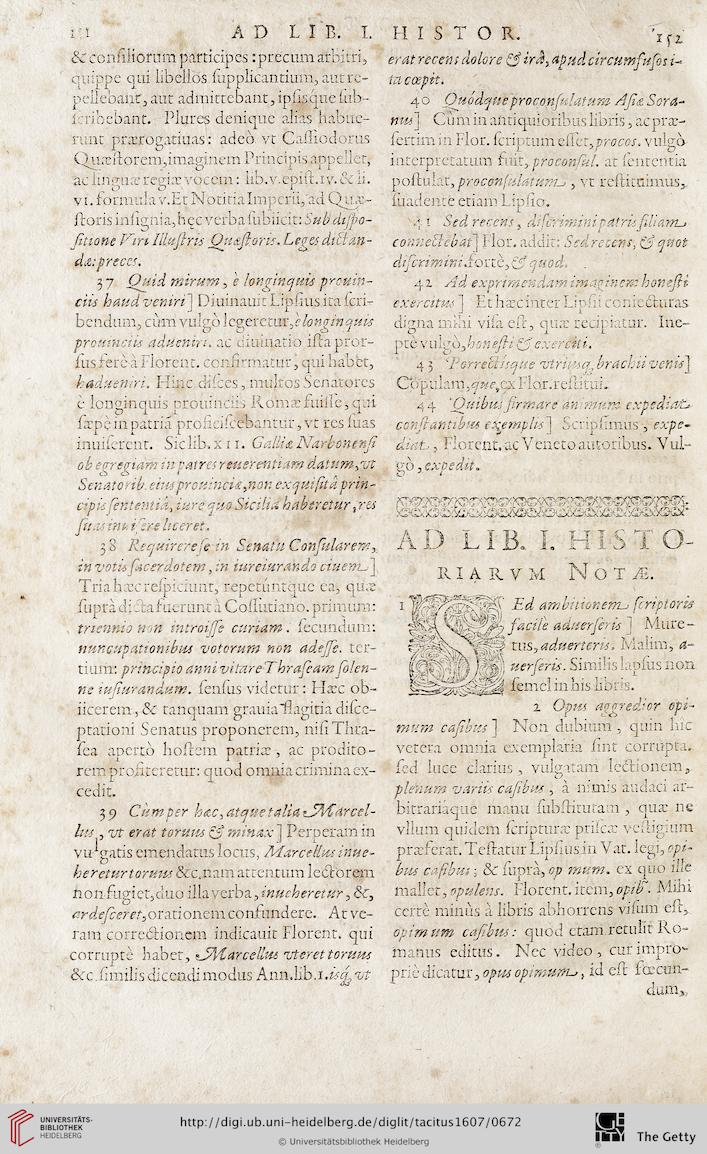 151 AD LIB. I. HISTOR. 152
& consiliorum participes: precum arbitri,
quippe qui libellos supplicantium, aut re-
pellebant, aut admittebant, ipsisque sub-
scribebant. Plures denique alias habue-
runt prærogatiuas: adeò vt Cassiodorus
Quæstorem, imaginem Principis appellet,
ac linguæ regiæ vocem: lib. v. epist. IV. & li.
VI. formula V. Et Notitia Imperii, ad Quæ-
storis insignia, hęc verba subiicit: Sub dispo-
sitione Viri Illustris Quæstoris. Leges dictan-
dæ: preces.
37 Quid mirum, è longinquis prouin-
ciis haud veniri] Diuinauit Lipsius ita scri-
bendum, cùm vulgò legeretur, è longinquis
prouinciis adueniri. ac diuinatio ista pror-
sus ferè à Florent. confirmatur, qui habet,
hadueniri. Hinc disces, multos Senatores
è longinquis prouinciis Romæ fuisse, qui
sæpè in patriā proficiscebantur, vt res suas
inuiserent. Sic lib. XII. Galliæ Narbonensi
ob egregiam in patres reuerentiam datum, vt
Senatorib. eius prouinciæ, non exquisitâ prin-
cipis sententiâ, iure quo Sicilia haberetur, res
suas inuisere liceret.
38 Requirere se in Senatu Consularem,
in votis sacerdotem, in iureiurando ciuem]
Tria hæc respiciunt, repetúntque ea, quæ
suprà dicta fuerunt à Cossutiano. primum:
triennio non introisse curiam. secundum:
nuncupationibus votorum non adesse. ter-
tium: principio anni vitare Thraseam solen-
ne iusiurandum. sensus videtur: Hæc ob-
iicerem, & tanquam grauia flagitia disce-
ptationi Senatus proponerem, nisi Thra-
sea apertò hostem patriæ, ac prodito-
rem profiteretur: quod omnia crimina ex-
cedit.
39 Cùm per hæc, atque talia Marcel-
lus, vt erat toruus & minax] Perperam in
vulgatis emendatus locus, Marcellus inue-
heretur toruus &c. nam attentum lectorem
non fugiet, duo illa verba, inueheretur, &,
ardesceret, orationem confundere. At ve-
ram correctionem indicauit Florent. qui
corruptè habet, Marcellus vteret toruus
&c. similis dicendi modus Ann. lib. 1. isq́, vt
erat recens dolore & irâ, apud circumfusos i-
ta cœpit.
40 Quódque proconsulatum Asiæ Sora-
nus] Cùm in antiquioribus libris, ac præ-
sertim in Flor. scriptum esset, procos. vulgò
interpretatum fuit, proconsul. at sententia
postulat, proconsulatum, vt restituimus,
suadente etiam Lipsio.
41 Sed recens, discrimini patris filiam
connectebat] Flor. addit: Sed recens, & quot
discrimini. fortè, & quod.
42 Ad exprimendam imaginem honesti
exercitus] Et hæc inter Lipsii coniecturas
digna mihi visa est, quæ recipiatur. Ine-
ptè vulgò, honesti & exerciti.
43 Porrectisque vtriusq, brachii venis]
Copulam, que, ex Flor. restitui.
44 Quibus firmare animum expediat
constantibus exemplis] Scripsimus, expe-
diat, Florent. ac Veneto autoribus. Vul-
gò, expedit.
AD LIB. I. HISTO-
RIARVM NOTÆ.
1 SEd ambitionem scriptoris
facilè aduerseris] Mure-
tus, aduerteris. Malim, a-
uerseris. Similis lapsus non
semel in his libris.
2 Opus aggredior opi-
mum casibus] Non dubium, quin hîc
vetera omnia exemplaria sint corrupta.
sed luce clarius, vulgatam lectionem,
plenum variis casibus, à nimis audaci ar-
bitrariáque manu substitutam, quæ ne
vllum quidem scripturæ priscæ vestigium
præferat. Testatur Lipsius in Vat. legi, opi-
bus casibus; & suprà, op mum. ex quo ille
mallet, opulens. Florent. item, opib⁹. Mihi
certè minùs à libris abhorrens visum est,
opimum casibus: quod etam retulit Ro-
manus editus. Nec video, cur impro-
priè dicatur, opus opimum, id est fœcun-
dum,
UNIVERSITÄTS-
BIBLIOTHEK
HEIDELBERG
http://digi.ub.uni-heidelberg.de/diglit/tacitus1607/0672
© Universitätsbibliothek Heidelberg
The Getty